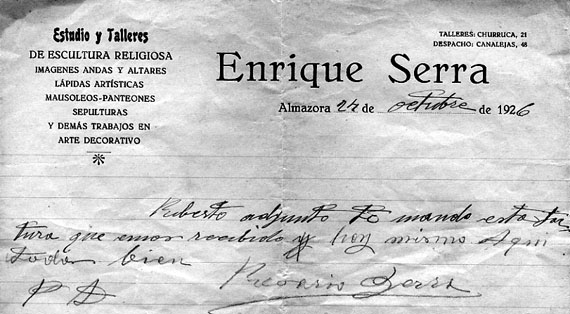 Estudio y Talleres
DE ESCULTURA RELIGIOSA
IMAGENES ANDAS Y ALTARES
LÁPIDAS ARTÍSTICAS
MAUSOLEOS-PANTEONES
SEPULTURAS
Y DEMÁS TRABAJOS EN
ARTE DECORATIVO
TALLERES: CHURRUCA, 21
DESPACHO: CANALEJAS, 48
Enrique Serra
Almazora 24 de octubre de 1926
Riberto adjunto to mando esta fac
tura que emos recibido y hoy mismo Aqui
todos bien
P D
Rosario Serra